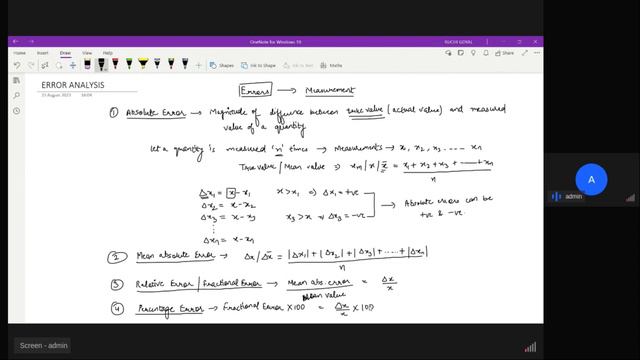 OneNote for Windows 10
RUCHI GOYAL
Home Insert Draw View Help
Share
Shapes Ink to Shape Ink to Text Maths
ERROR ANALYSIS
Errors → Measurement
① Absolute Error → Magnitude of difference between true value (actual value) and measured
value of a quantity
Let a quantity is measured 'n' times → Measurements → x₁, x₂, x₃ ...... xₙ
True value / Mean value ⇒ xₘ / x / x̄ = x₁ + x₂ + x₃ + ...... + xₙ / n
Δx₁ = x - x₁ x > x₁ ⇒ Δx₁ = +ve
Δx₂ = x - x₂ → Absolute errors can be
Δx₃ = x - x₃ x₃ > x ⇒ Δx₃ = -ve +ve & -ve.
Δxₙ = x - xₙ
② Mean absolute Error → Δx / Δx̄ = |Δx₁| + |Δx₂| + |Δx₃| + ...... + |Δxₙ| / n
③ Relative Error / Fractional Error → Mean abs. error / Mean value = Δx / x
④ Percentage Error → Fractional Error × 100 = Δx / x × 100
A
admin
Screen - admin